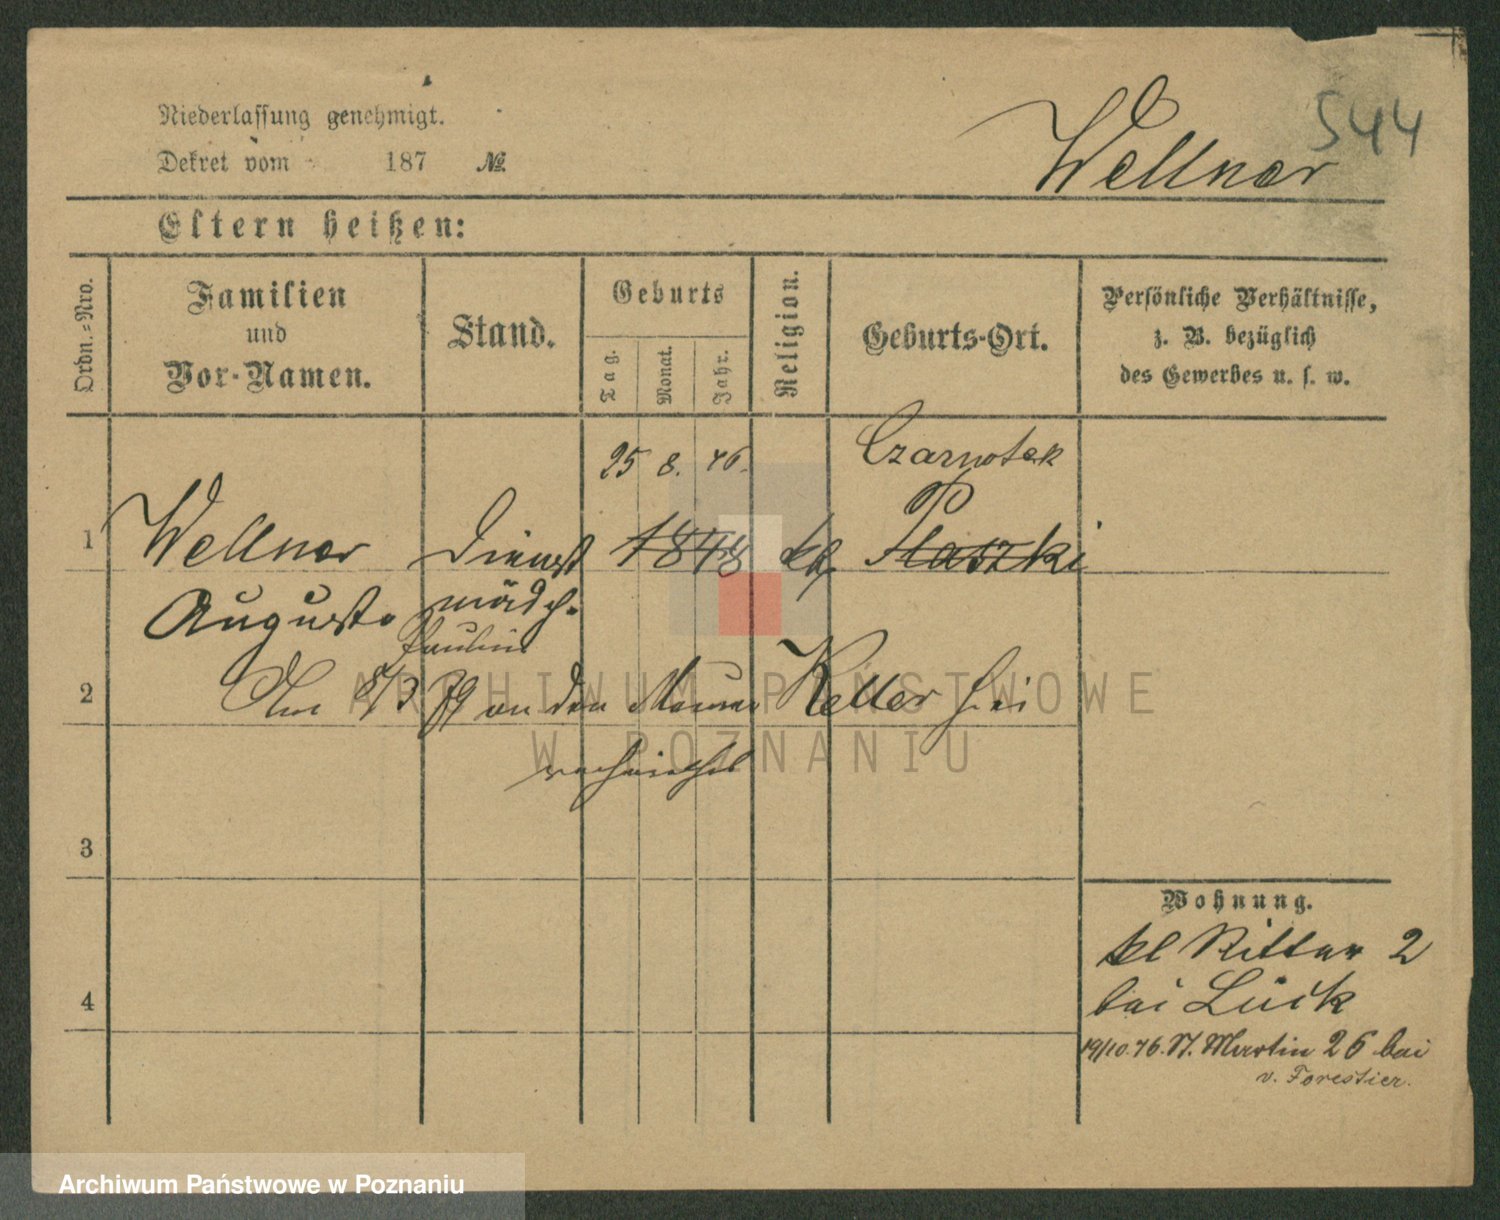 544
Wellner
Niederlassung genehmigt.
Dekret vom 187 №
Eltern heißen:
Ordn.-Nro.
Familien
und
Vor-Namen.
Stand.
Geburts
Tag.
Monat.
Jahr.
Religion.
Geburts-Ort.
Persönliche Verhältnisse,
z. B. bezüglich
des Gewerbes u. s. w.
25 8. 46. Czarnotek
1 Wellner Dienst 1848 kt. Plaszki
Auguste mädch.
Pauline
2 Am 8/3 79 an den Maurer Keller hier
verheirathet
3
Wohnung.
kl Ritter 2
4
bei Lück
19/10.76. St. Martin 26 bei
v. Forestier.
ARCHIWUM PAŃSTWOWE
W POZNANIU
Archiwum Państwowe w Poznaniu